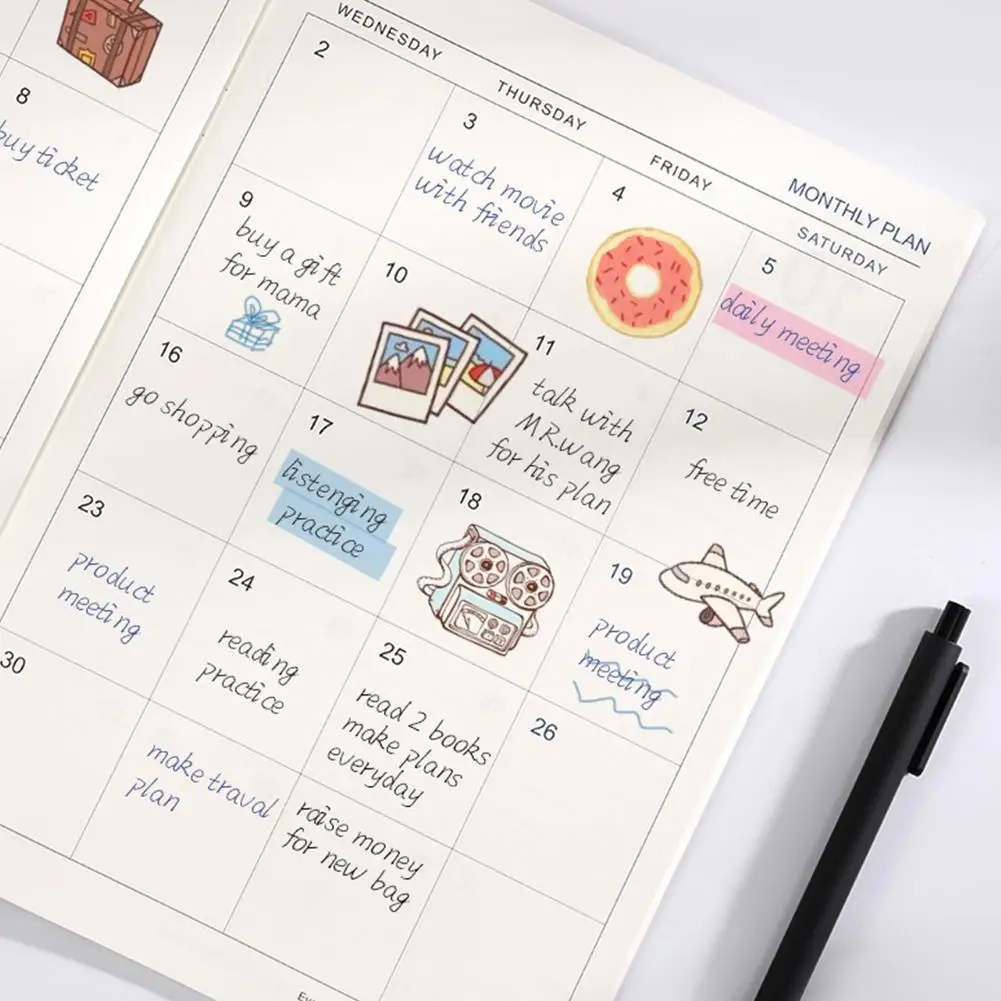 MONTHLY PLAN
WEDNESDAY
THURSDAY
FRIDAY
SATURDAY
8
buy ticket
2
3
watch movie
with friends
4
5
daily meeting
9
buy a gift
for mama
10
11
talk with
MR.wang
for his plan
12
free time
16
go shopping
17
listenging
practice
18
19
product
meeting
23
product
meeting
24
reading
practice
25
read 2 books
make plans
everyday
26
30
make traval
plan
raise money
for new bag